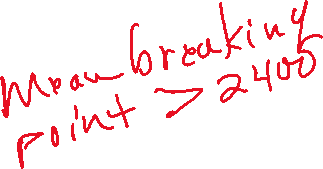 Mean breaking
point > 2400